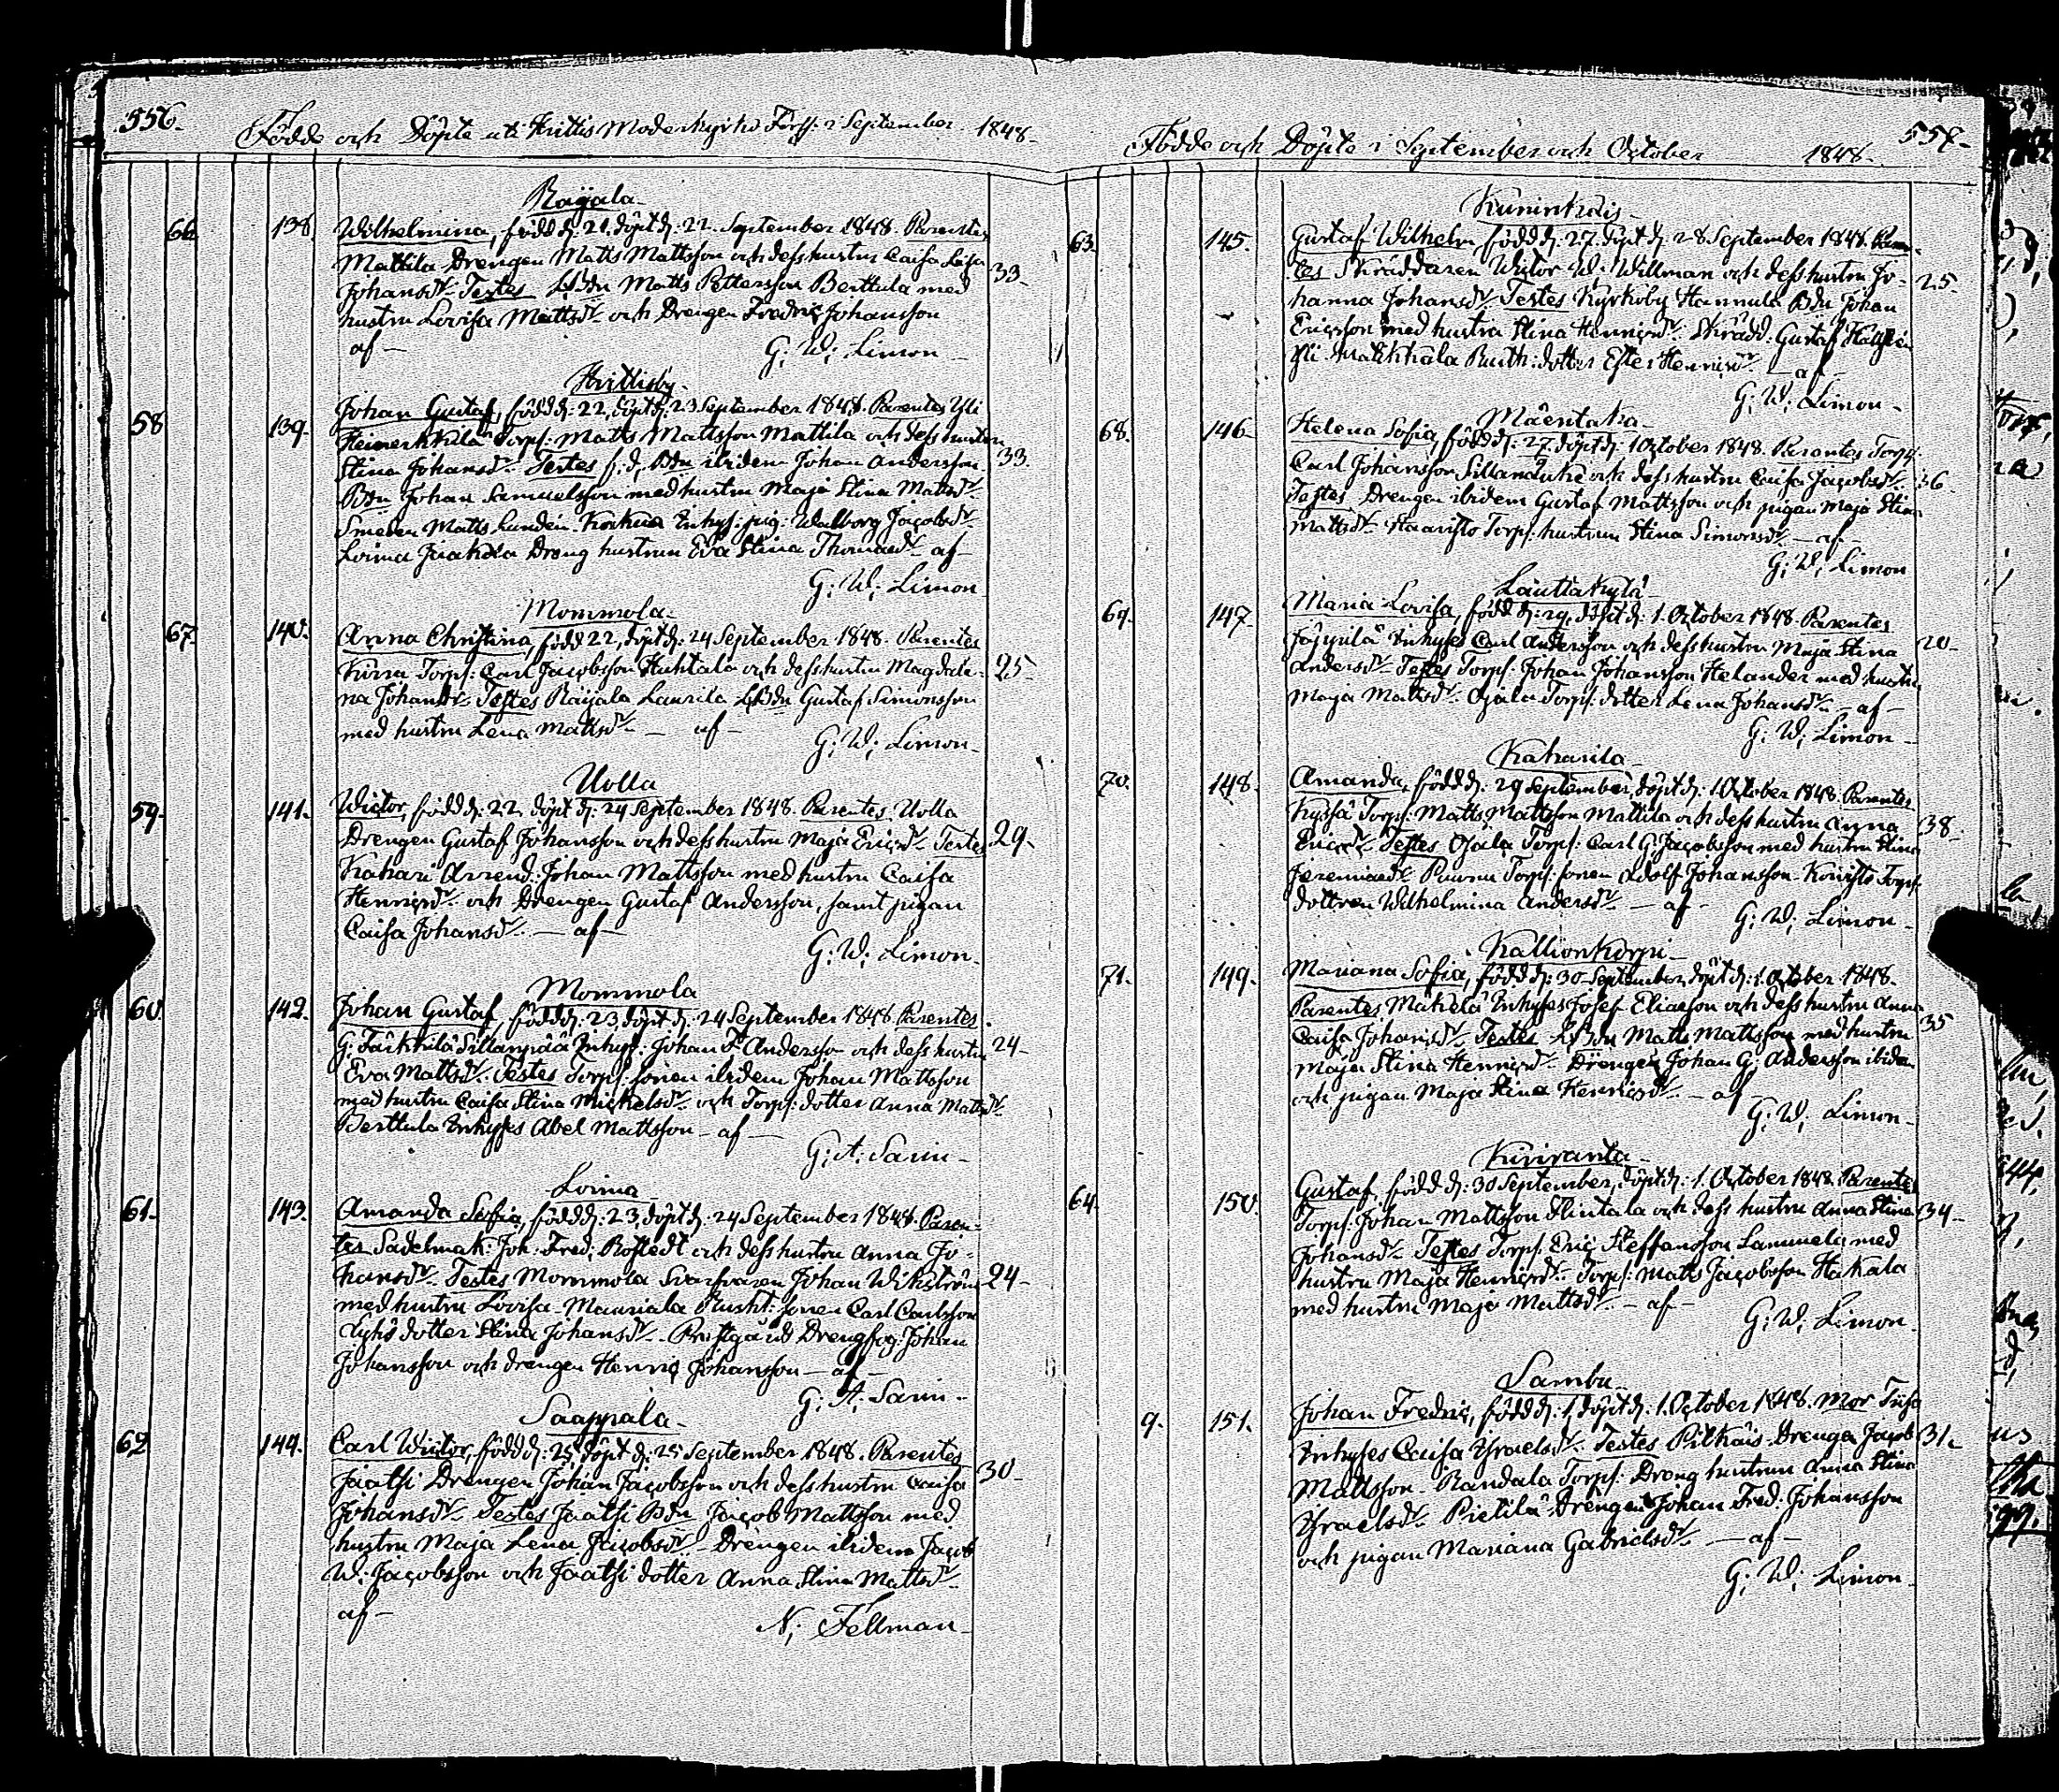 556.
Födde och Döpte uti Hvittis Moderkyrko Förs: i September 1848.
Raijala
66. 138. Wilhelmina, född d: 21. döpt d: 22. September 1848. Parentes
Mattila Drengen Matts Mattsson och dess hustru Caisa Lisa 33
Johansdr. Testes Matts Pettersson Berttula med
hustru Lovisa Mattsdr och Drengen Fredric Johansson
af
G: W: Limon
Hvittisby
58 139. Johan Gustaf, född d: 22, döpt d: 23 September 1848. Parentes Yli
Torp: Matts Mattsson Mattila och dess hustru 33.
Stina Johansdr. Testes f. d. Bdn ibidem Johan Andersson
Bdn Johan Samuelsson med hustru Maja Stina Mattsdr
Smeden Matts Inhys: pig: Walborg Jacobsdr
Loima Jaakola Dreng hustrun Eva Stina Thomasdr af
G: W: Limon
Mommola
67. 140. Anna Christina, född 22, döpt d: 24 September 1848. Parentes
Torp: Carl Jacobsson Huhtala och dess hustru Magdale- 25
na Johansdr Testes Raijala Laurila Gustaf Simonsson
med hustru Lena Mattsdr af
G: W: Limon
Uolla
59. 141. Wictor, född d: 22, döpt d: 24 September 1848. Parentes Uolla
Drengen Gustaf Johansson och dess hustru Maja Ericsdr Testes 29.
Kahari Arrend: Johan Mattsson med hustru Caisa
Henricsdr och Drengen Gustaf Andersson, samt pigan
Caisa Johansdr. af
G: W: Limon
Mommola
60. 142. Johan Gustaf, född d: 23, döpt d: 24 September 1848. Parentes
G: Sillanpää Inhys: Johan F Andersson och dess hustru 24
Eva Mattsdr. Testes Torp: sonen ibidem Johan Mattsson
med hustru Caisa Stina Mickelsdr och Torp: dotter Anna Mattsdr
Berttula Inhyses Abel Mattsson af
G: A: Sarin
Loima
61. 143. Amanda Sofia, född d: 23, döpt d: 24 September 1848. Paren-
tes Sadelmak: Joh: Fred: Rostedt och dess hustru Anna Jo-
hansdr Testes Mommola Svarfvaren Johan Wikström 24
med hustru Lovisa Mauriala Rusht: sonen Carl Carlsson
dotter Stina Johansdr Prestgård Drengfog: Johan
Johansson och drengen Henric Johansson af
G: A: Sarin
Saappala
62 144. Carl Wictor, född d: 25, döpt d: 25 September 1848. Parentes
Jaatsi Drengen Johan Jacobsson och dess hustru Caisa 30
Johansdr. Testes Jaatsi Bdn Jacob Mattsson med
hustru Maja Lena Jacobsdr Drengen ibidem Jacob
W: Jacobsson och Jaatsi dotter Anna Stina Mattsdr
af
N: Fellman
557.
Födde och Döpte i September och October 1848.
Kuninkais
63. 145. Gustaf Wilhelm, född d: 27. döpt d: 28 September 1848. Paren-
tes Skräddaren Wictor W: Willman och dess hustru Jo- 25.
hanna Johansdr. Testes Kyrkoby Hannula Bdn Johan
Ericsson med hustru Stina Henricsdr. Skrädd: Gustaf
Yli Rusth: dotter Ester Henricsdr af
G: W: Limon
Mäentaka
68. 146. Helena Sofia, född d: 27. döpt d: 1 October 1848. Parentes Torp:
Carl Johansson och dess hustru Caisa Jacobsdr 36
Testes Drengen ibidem Gustaf Mattsson och pigan Maja Stina
Mattsdr Torp: hustrun Stina Simonsdr af
G: W: Limon
Lauttakylä
69. 147. Maria Lovisa, född d: 29, döpt d: 1. October 1848. Parentes
Inhyses Carl Andersson och dess hustru Maja Stina 20
Andersdr Testes Torp: Johan Johansson Helander med hustru
Maja Mattsdr. Ojala Torp: dotter Lena Johansdr. af
G: W: Limon
Kaharila
70. 148. Amanda, född d: 29 September, döpt d: 1 October 1848. Parentes
Torp: Matts Mattsson Mattila och dess hustru Anna 38
Ericsdr Testes Ojala Torp: Carl G: Jacobsson med hustru Stina
Jeremiaedr Torp: sonen Adolf Johansson Koivisto Torp:
dottren Wilhelmina Andersdr. af
G: W: Limon
Kallionkorpi
71. 149. Mariana Sofia, född d: 30 September, döpt d: 1. October 1848.
Parentes Mäkelä Inhyses Josef Eliaeson och dess hustru Anna 35
Caisa Johansdr Testes Matts Mattsson med hustru
Maja Stina Henricsdr. Drengen Johan G: Andersson ibidem
och pigan Maja Stina Henricsdr. af
G: W: Limon
Kiviranta
64. 150. Gustaf, född d: 30 September, döpt d: 1. October 1848. Parentes
Torp: Johan Mattsson Hintala och dess hustru Anna Stina 34
Johansdr Testes Torp: Eric Steffansson Lammela med
hustru Maja Henricsdr. Torp: Matts Jacobsson Hakala
med hustru Maja Mattsdr. af
G: W: Limon
Sambu
9. 151. Johan Fredric, född d: 1, döpt d: 1. October 1848. Mor
Inhyses Caisa Ysraelsdr. Testes Drengen Jacob 31.
Mattsson Randala Torp: Dreng hustrun Anna Stina
Ysraelsdr. Pietilä Drengen Johan Fred: Johansson
och pigan Mariana Gabrielsdr af
G: W: Limon